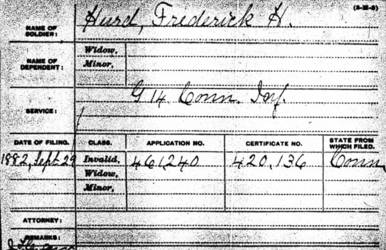 (3-22-3)
NAME OF SOLDIER: Hurd, Frederick H.
NAME OF DEPENDENT: Widow,
Minor,
SERVICE: G 14 Conn. Inf.
DATE OF FILING. CLASS. APPLICATION NO. CERTIFICATE NO. STATE FROM WHICH FILED.
1882, Sept 29 Invalid, 461,240 420,136 Conn
Widow,
Minor,
ATTORNEY:
REMARKS: